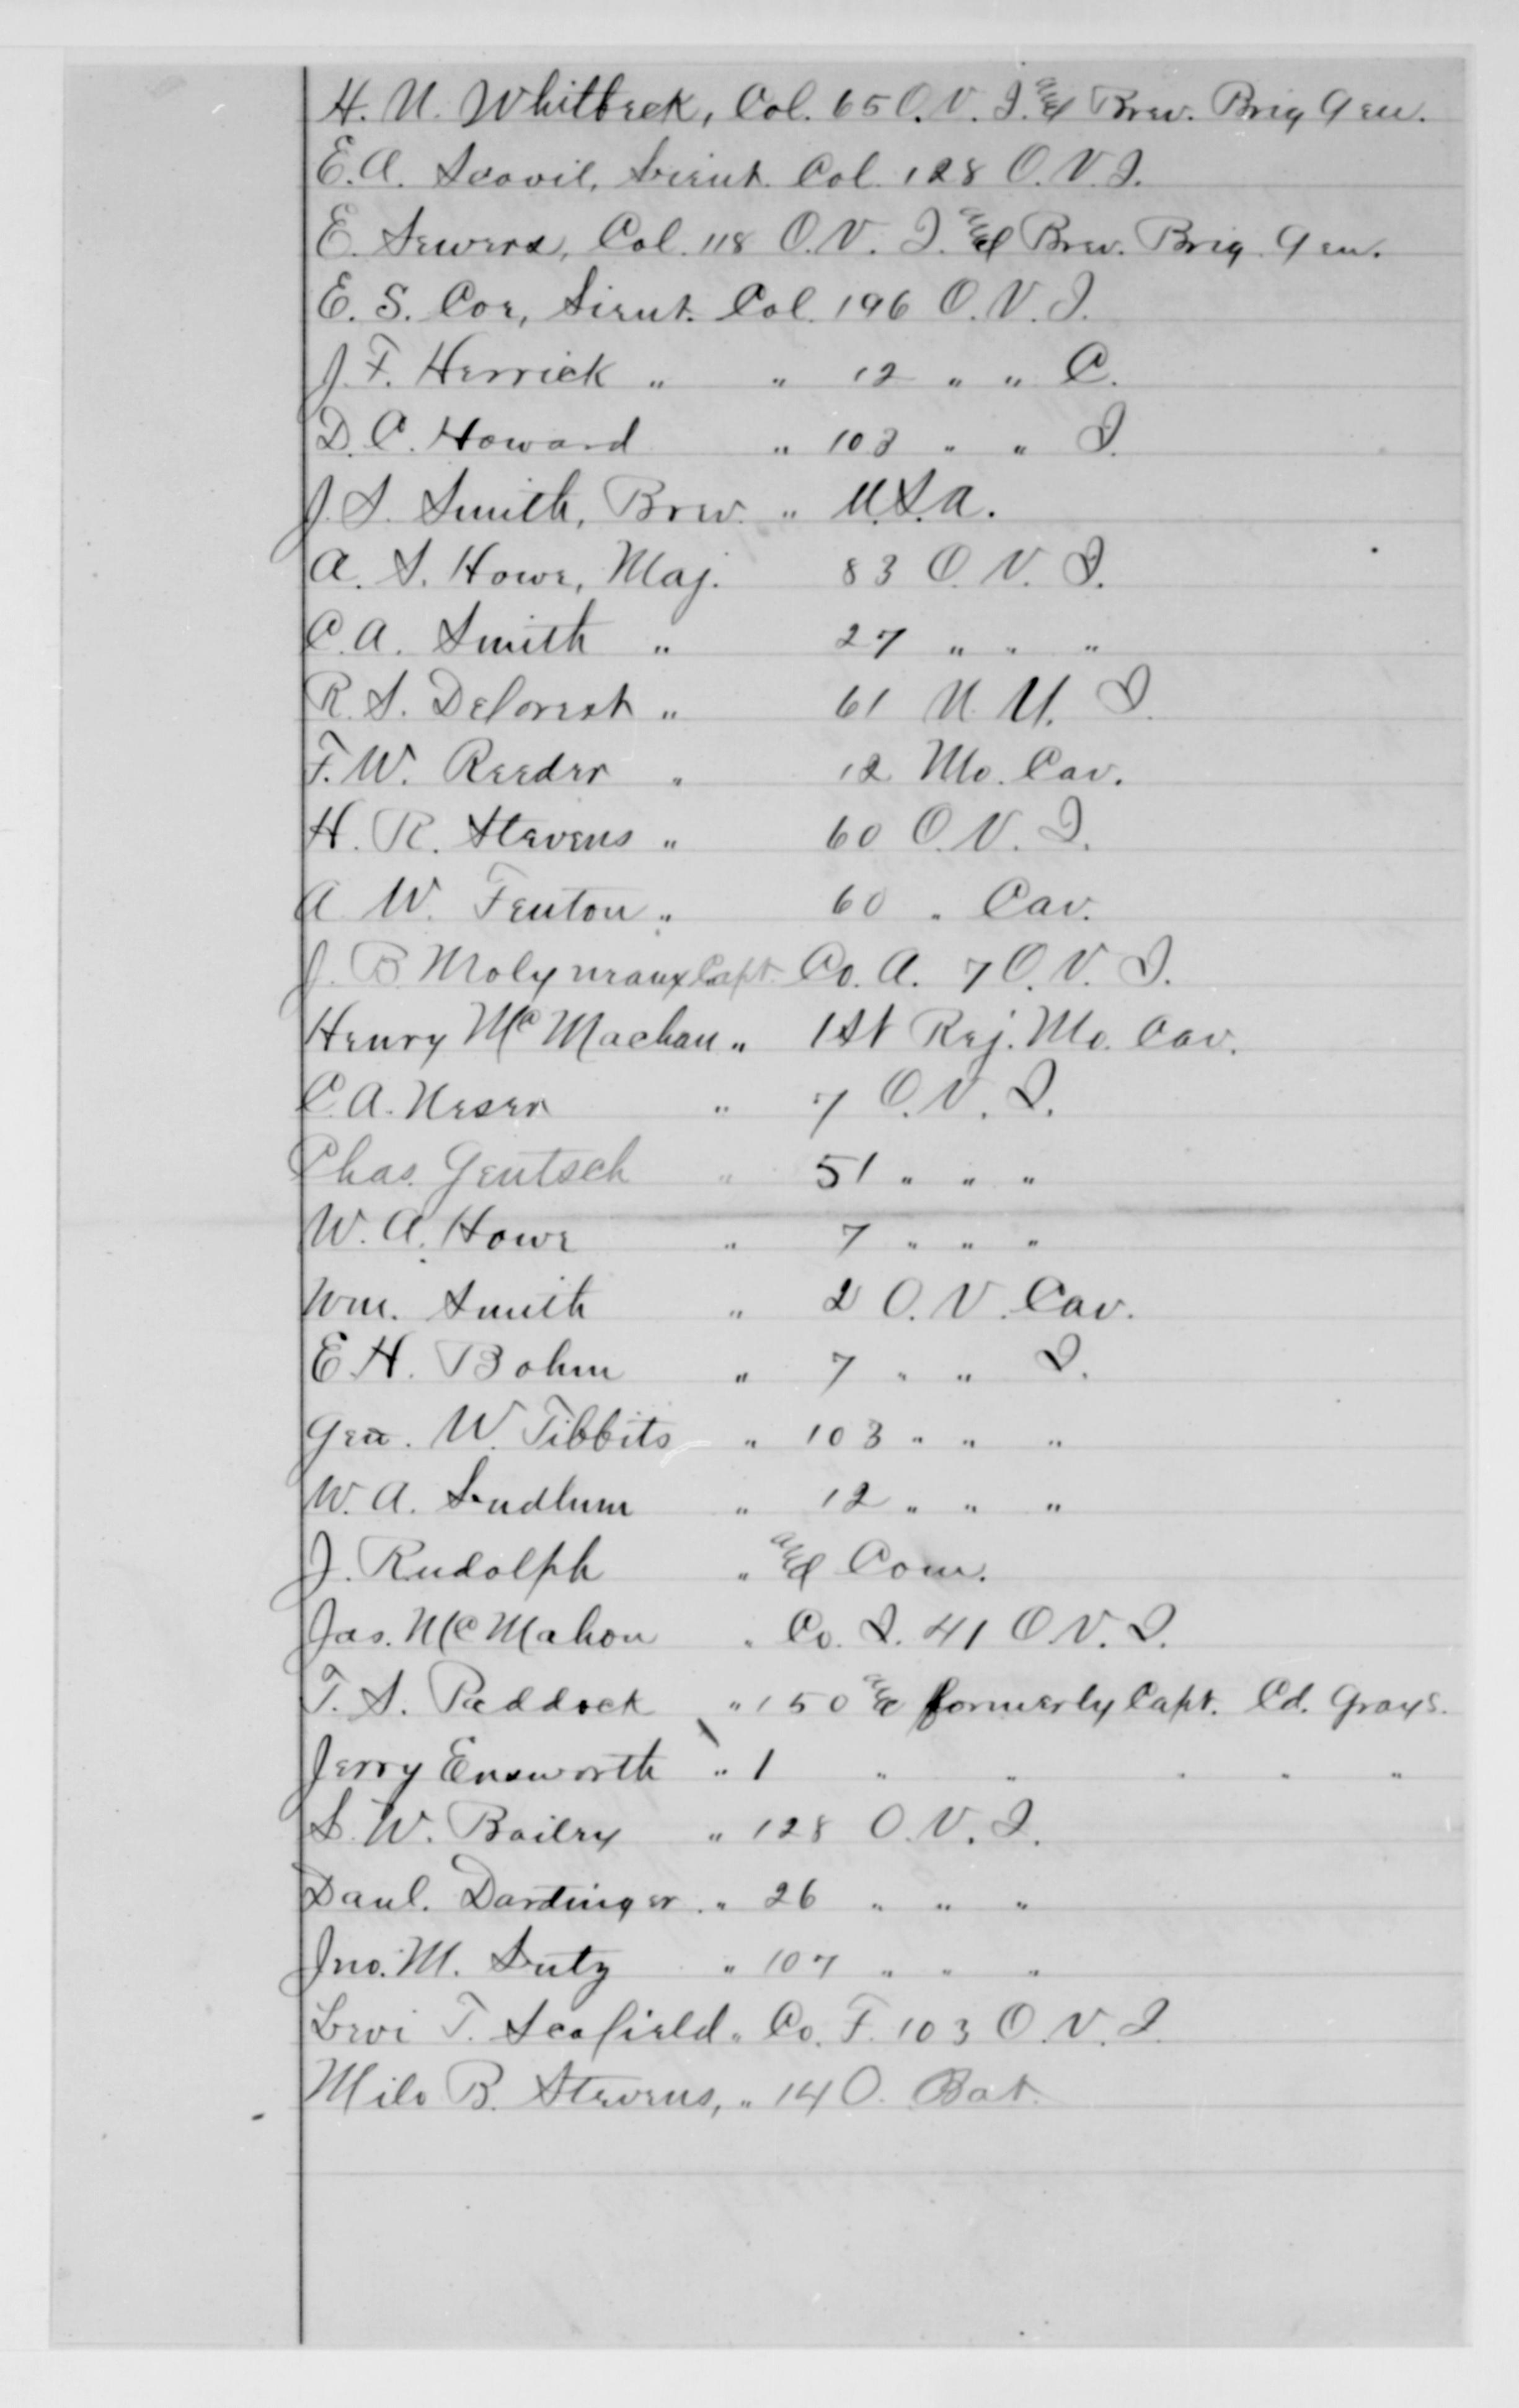 H. N. Whitbeck, Col. 65 O. V. I. and Brev. Brig Gen.
E. A. Scovil, Lieut. Col. 128 O. V. I.
E. Sewers, Col. 118 O. V. I. and Brev. Brig. Gen.
E. S. Coe, Lieut. Col. 196 O. V. I.
J. F. Herrick " " 12 " " C.
D. C. Howard " 103 " " I.
J. S. Smith, Brev. " U. S. A.
A. S. Howe, Maj. 83 O. V. I.
C. A. Smith " 27 " " "
R. S. Deforest " 61 U. I.
F. W. Reeder " 12 Mo. Cav.
H. R. Stevens " 60 O. V. I.
A W. Fenton " 60 " Cav.
J. B. Molyneaux Capt. Co. A. 7 O. V. I.
Henry Mc Machan " 1st Rej. Mo. Cav.
C. A. Neser " 7 O. V. I.
Chas. Gentsch " 51 " " "
W. A. Howe " 7 " " "
Wm. Smith " 2 O. V. Cav.
E. H. Bohm " 7 " " I.
Geo. W. Tibbits " 103 " " "
W. A. Ludlum " 12 " " "
J. Rudolph " and Com.
Jas. McMahon " Co. I. 41 O. V. I.
T. S. Paddock " 150 and formerly Capt. Cd. Grays.
Jerry Ensworth " 1 " " " " "
S. W. Bailey " 128 O. V. I.
Danl. Dardinger " 26 " " "
Jno. M. Lutz " 107 " " "
Levi T. Scofield " Co. F. 103 O. V. I.
Milo B. Stevens, " 14 O. Bat.